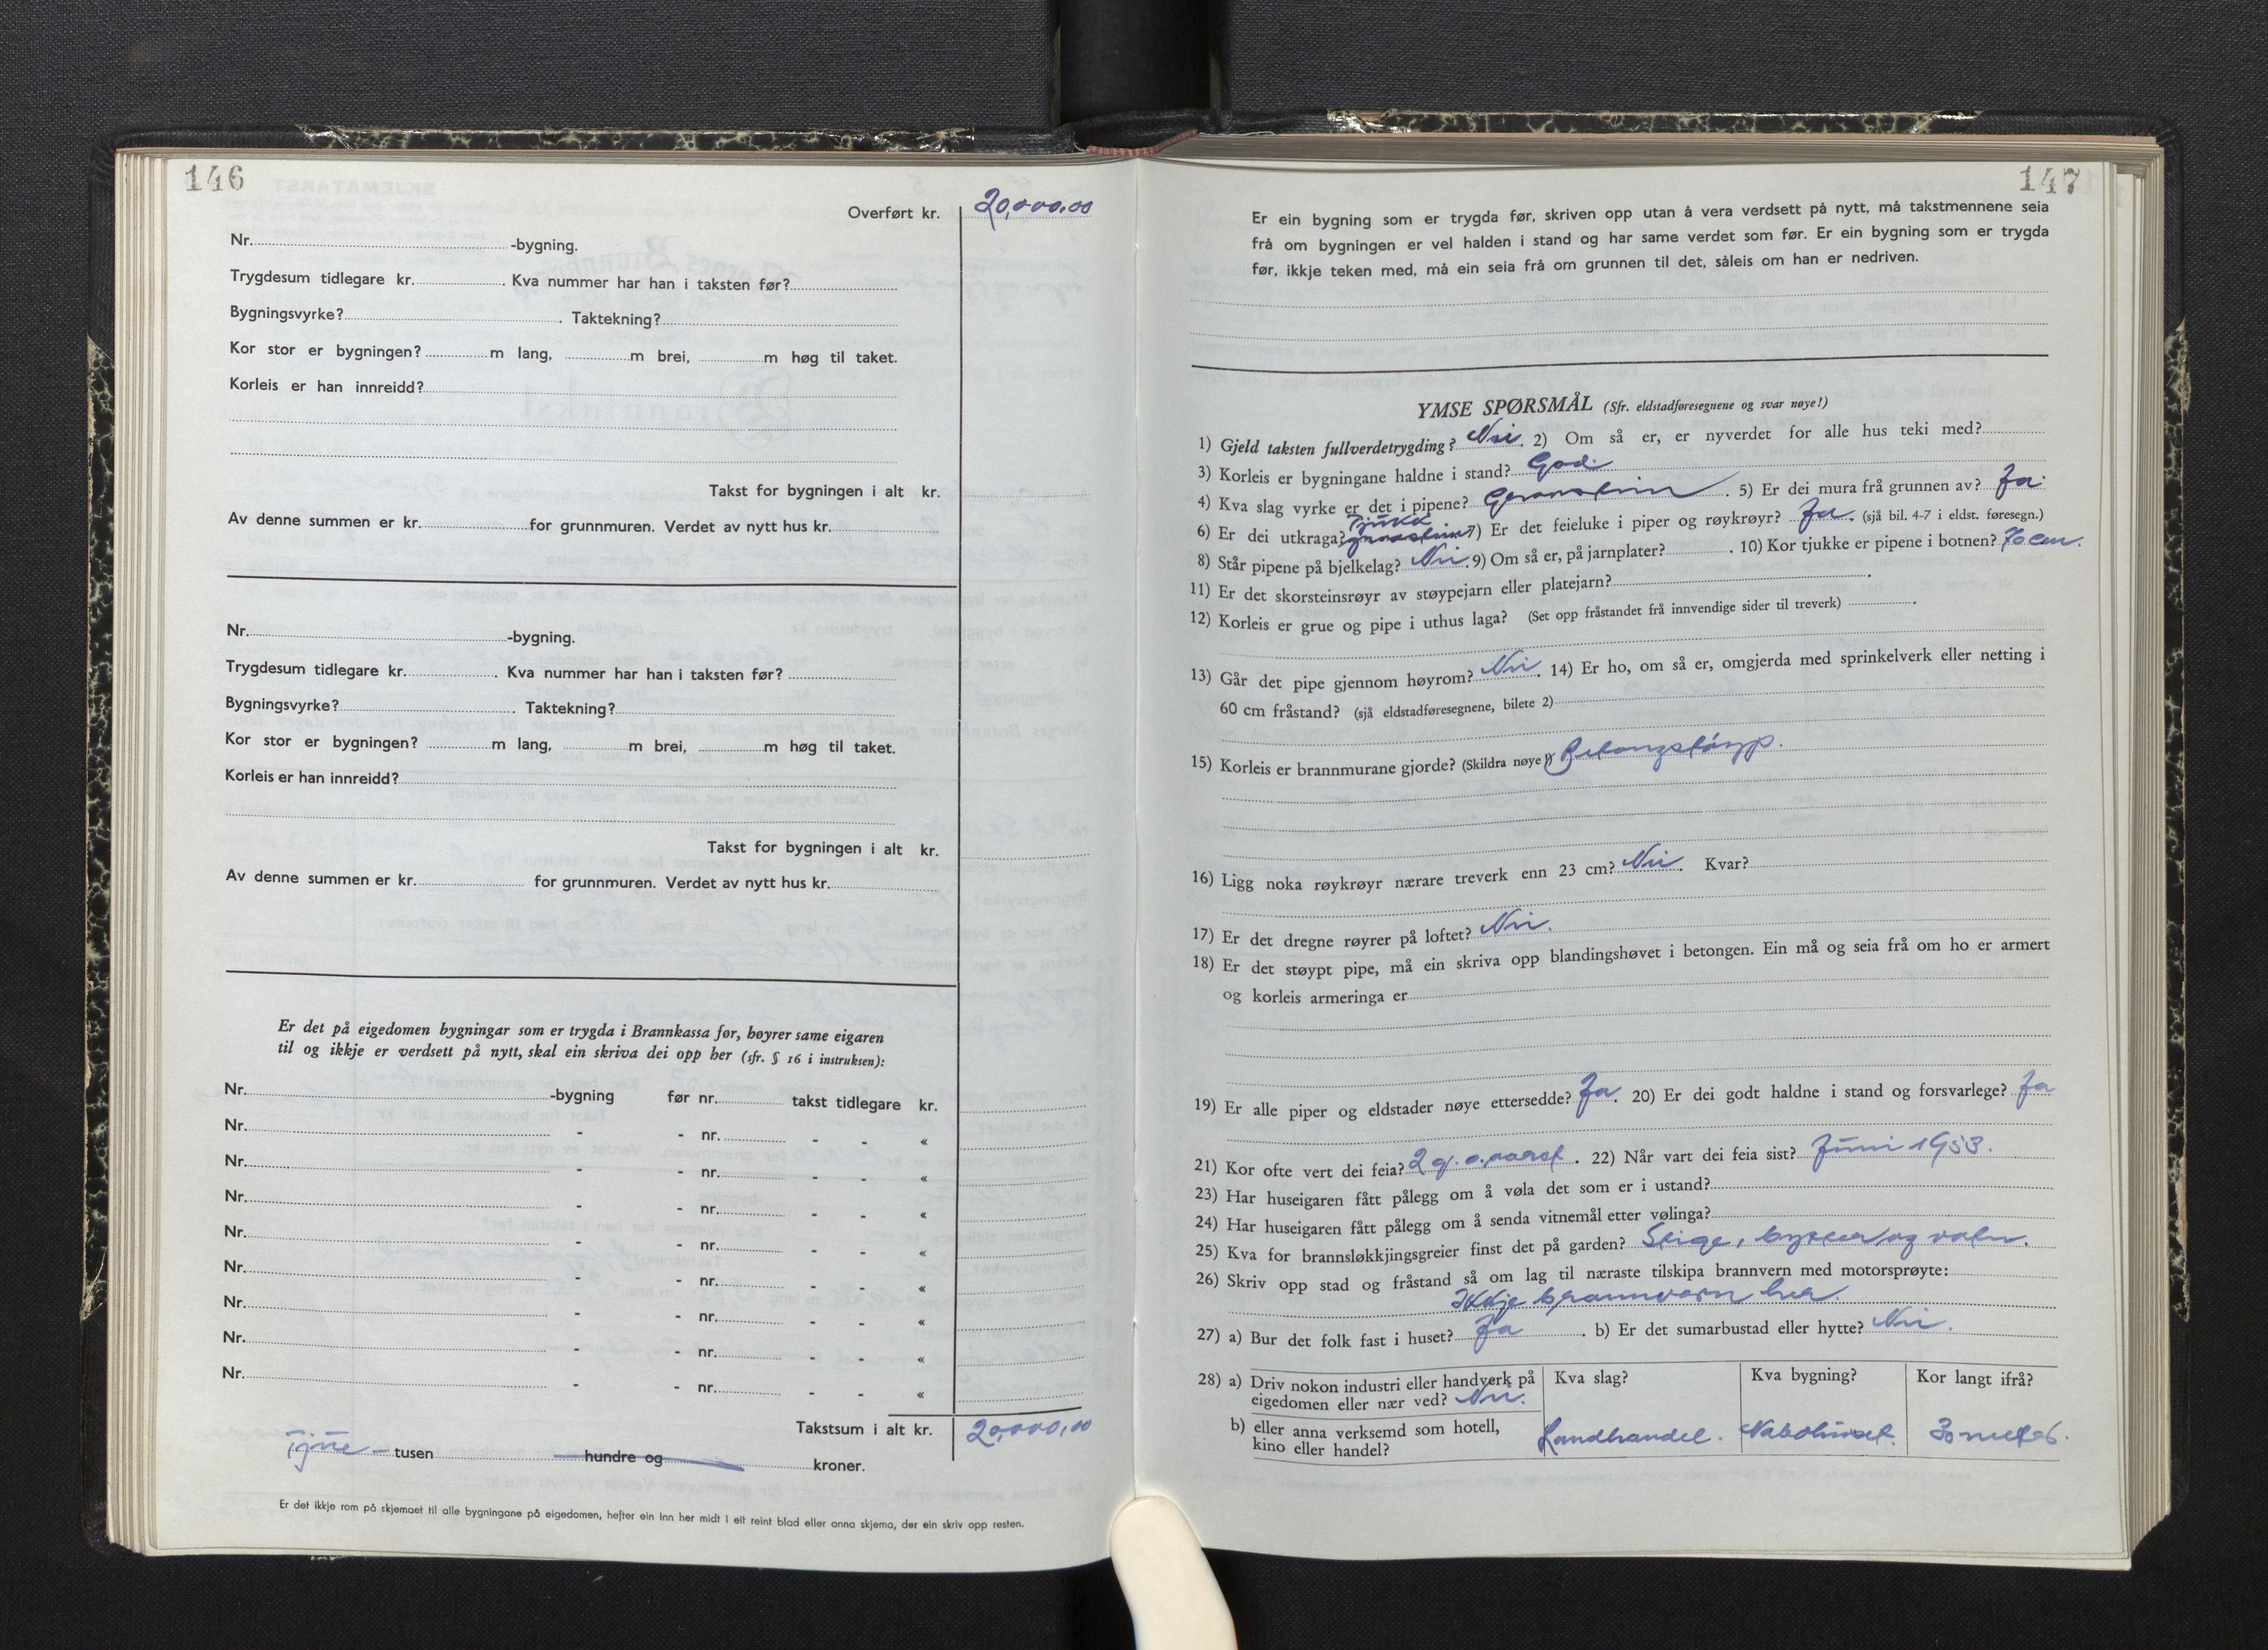 146
Overført kr. 20,000,00
Nr. -bygning.
Trygdesum tidlegare kr. . Kva nummer har han i taksten før?
Bygningsvyrke? . Taktekning?
Kor stor er bygningen? m lang, m brei, m høg til taket.
Korleis er han innreidd?
Takst for bygningen i alt kr.
Av denne summen er kr. for grunnmuren. Verdet av nytt hus kr.
Nr. -bygning.
Trygdesum tidlegare kr. . Kva nummer har han i taksten før?
Bygningsvyrke? . Taktekning?
Kor stor er bygningen? m lang, m brei, m høg til taket.
Korleis er han innreidd?
Takst for bygningen i alt kr.
Av denne summen er kr. for grunnmuren. Verdet av nytt hus kr.
Er det på eigedomen bygningar som er trygda i Brannkassa før, høyrer same eigaren
til og ikkje er verdsett på nytt, skal ein skriva dei opp her (sfr. § 16 i instruksen):
Nr. -bygning før nr. takst tidlegare kr.
Nr. - - nr. - - «
Nr. - - nr. - - «
Nr. - - nr. - - «
Nr. - - nr. - - «
Nr. - - nr. - - «
Nr. - - nr. - - «
Nr. - - nr. - - «
Nr. - - nr. - - «
Takstsum i alt kr. 20,000,00
Tjue – tusen hundre og kroner.
Er det ikkje rom på skjemaet til alle bygningane på eigedomen, hefter ein inn her midt i eit reint blad eller anna skjema, der ein skriv opp resten.
147
Er ein bygning som er trygda før, skriven opp utan å vera verdsett på nytt, må takstmennene seia
frå om bygningen er vel halden i stand og har same verdet som før. Er ein bygning som er trygda
før, ikkje teken med, må ein seia frå om grunnen til det, såleis om han er nedriven.
YMSE SPØRSMÅL (Sfr. eldstadføresegnene og svar nøye!)
1) Gjeld taksten fullverdetrygding? Nei. 2) Om så er, er nyverdet for alle hus teki med?
3) Korleis er bygningane haldne i stand? God.
4) Kva slag vyrke er det i pipene? . 5) Er dei mura frå grunnen av? Ja.
6) Er dei utkraga? 7) Er det feieluke i piper og røykrøyr? Ja. (sjå bil. 4-7 i eldst. føresegn.)
8) Står pipene på bjelkelag? Nei. 9) Om så er, på jarnplater? . 10) Kor tjukke er pipene i botnen? 70 cm.
11) Er det skorsteinsrøyr av støypejarn eller platejarn? .
12) Korleis er grue og pipe i uthus laga? (Set opp fråstandet frå innvendige sider til treverk) .
13) Går det pipe gjennom høyrom? Nei. 14) Er ho, om så er, omgjerda med sprinkelverk eller netting i
60 cm fråstand? (sjå eldstadføresegnene, bilete 2)
15) Korleis er brannmurane gjorde? (Skildra nøye!) Betongstøyp.
16) Ligg noka røykrøyr nærare treverk enn 23 cm? Nei. Kvar?
17) Er det dregne røyrer på loftet? Nei.
18) Er det støypt pipe, må ein skriva opp blandingshøvet i betongen. Ein må og seia frå om ho er armert
og korleis armeringa er
19) Er alle piper og eldstader nøye ettersedde? Ja. 20) Er dei godt haldne i stand og forsvarlege? Ja
21) Kor ofte vert dei feia? 2 g. o. aaret. 22) Når vart dei feia sist? Juni 1953.
23) Har huseigaren fått pålegg om å vøla det som er i ustand?
24) Har huseigaren fått pålegg om å senda vitnemål etter vølinga?
25) Kva for brannsløkkjingsgreier finst det på garden? Stige, bytter og vatn.
26) Skriv opp stad og fråstand så om lag til næraste tilskipa brannvern med motorsprøyte:
Ikkje brannvern her.
27) a) Bur det folk fast i huset? Ja . b) Er det sumarbustad eller hytte? Nei.
28) a) Driv nokon industri eller handverk på Kva slag? Kva bygning? Kor langt ifrå?
eigedomen eller nær ved? Nei.
b) eller anna verksemd som hotell, Landhandel. Nabohuset. 30 meter.
kino eller handel?